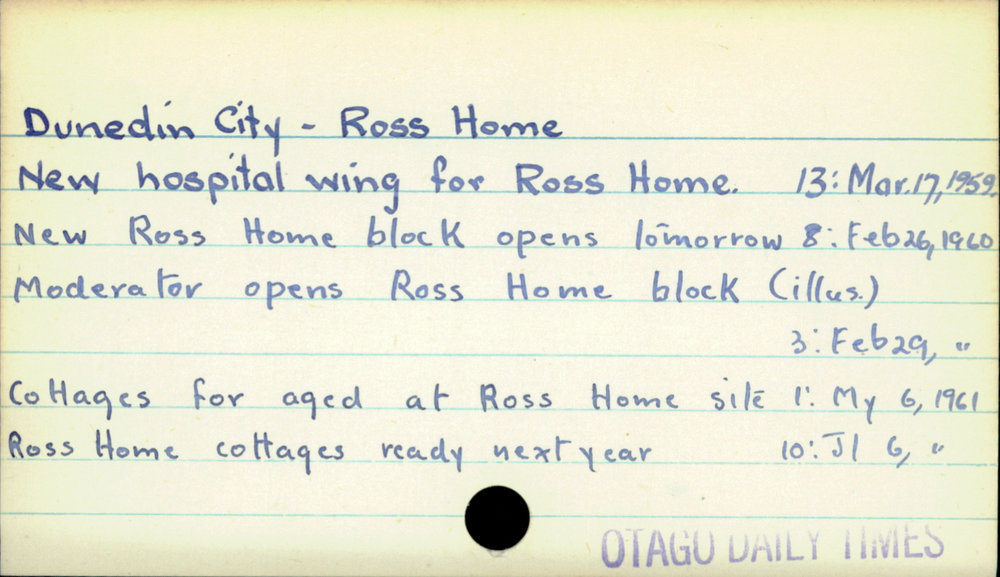 Dunedin City - Ross Home
New hospital wing for Ross Home. 13: Mar. 17, 1959.
New Ross Home block opens tomorrow 8: Feb 26, 1960
Moderator opens Ross Home block (illus.)
3: Feb 29, "
Cottages for aged at Ross Home site 1: My 6, 1961
Ross Home cottages ready next year 10: Jl 6, "
OTAGO DAILY TIMES